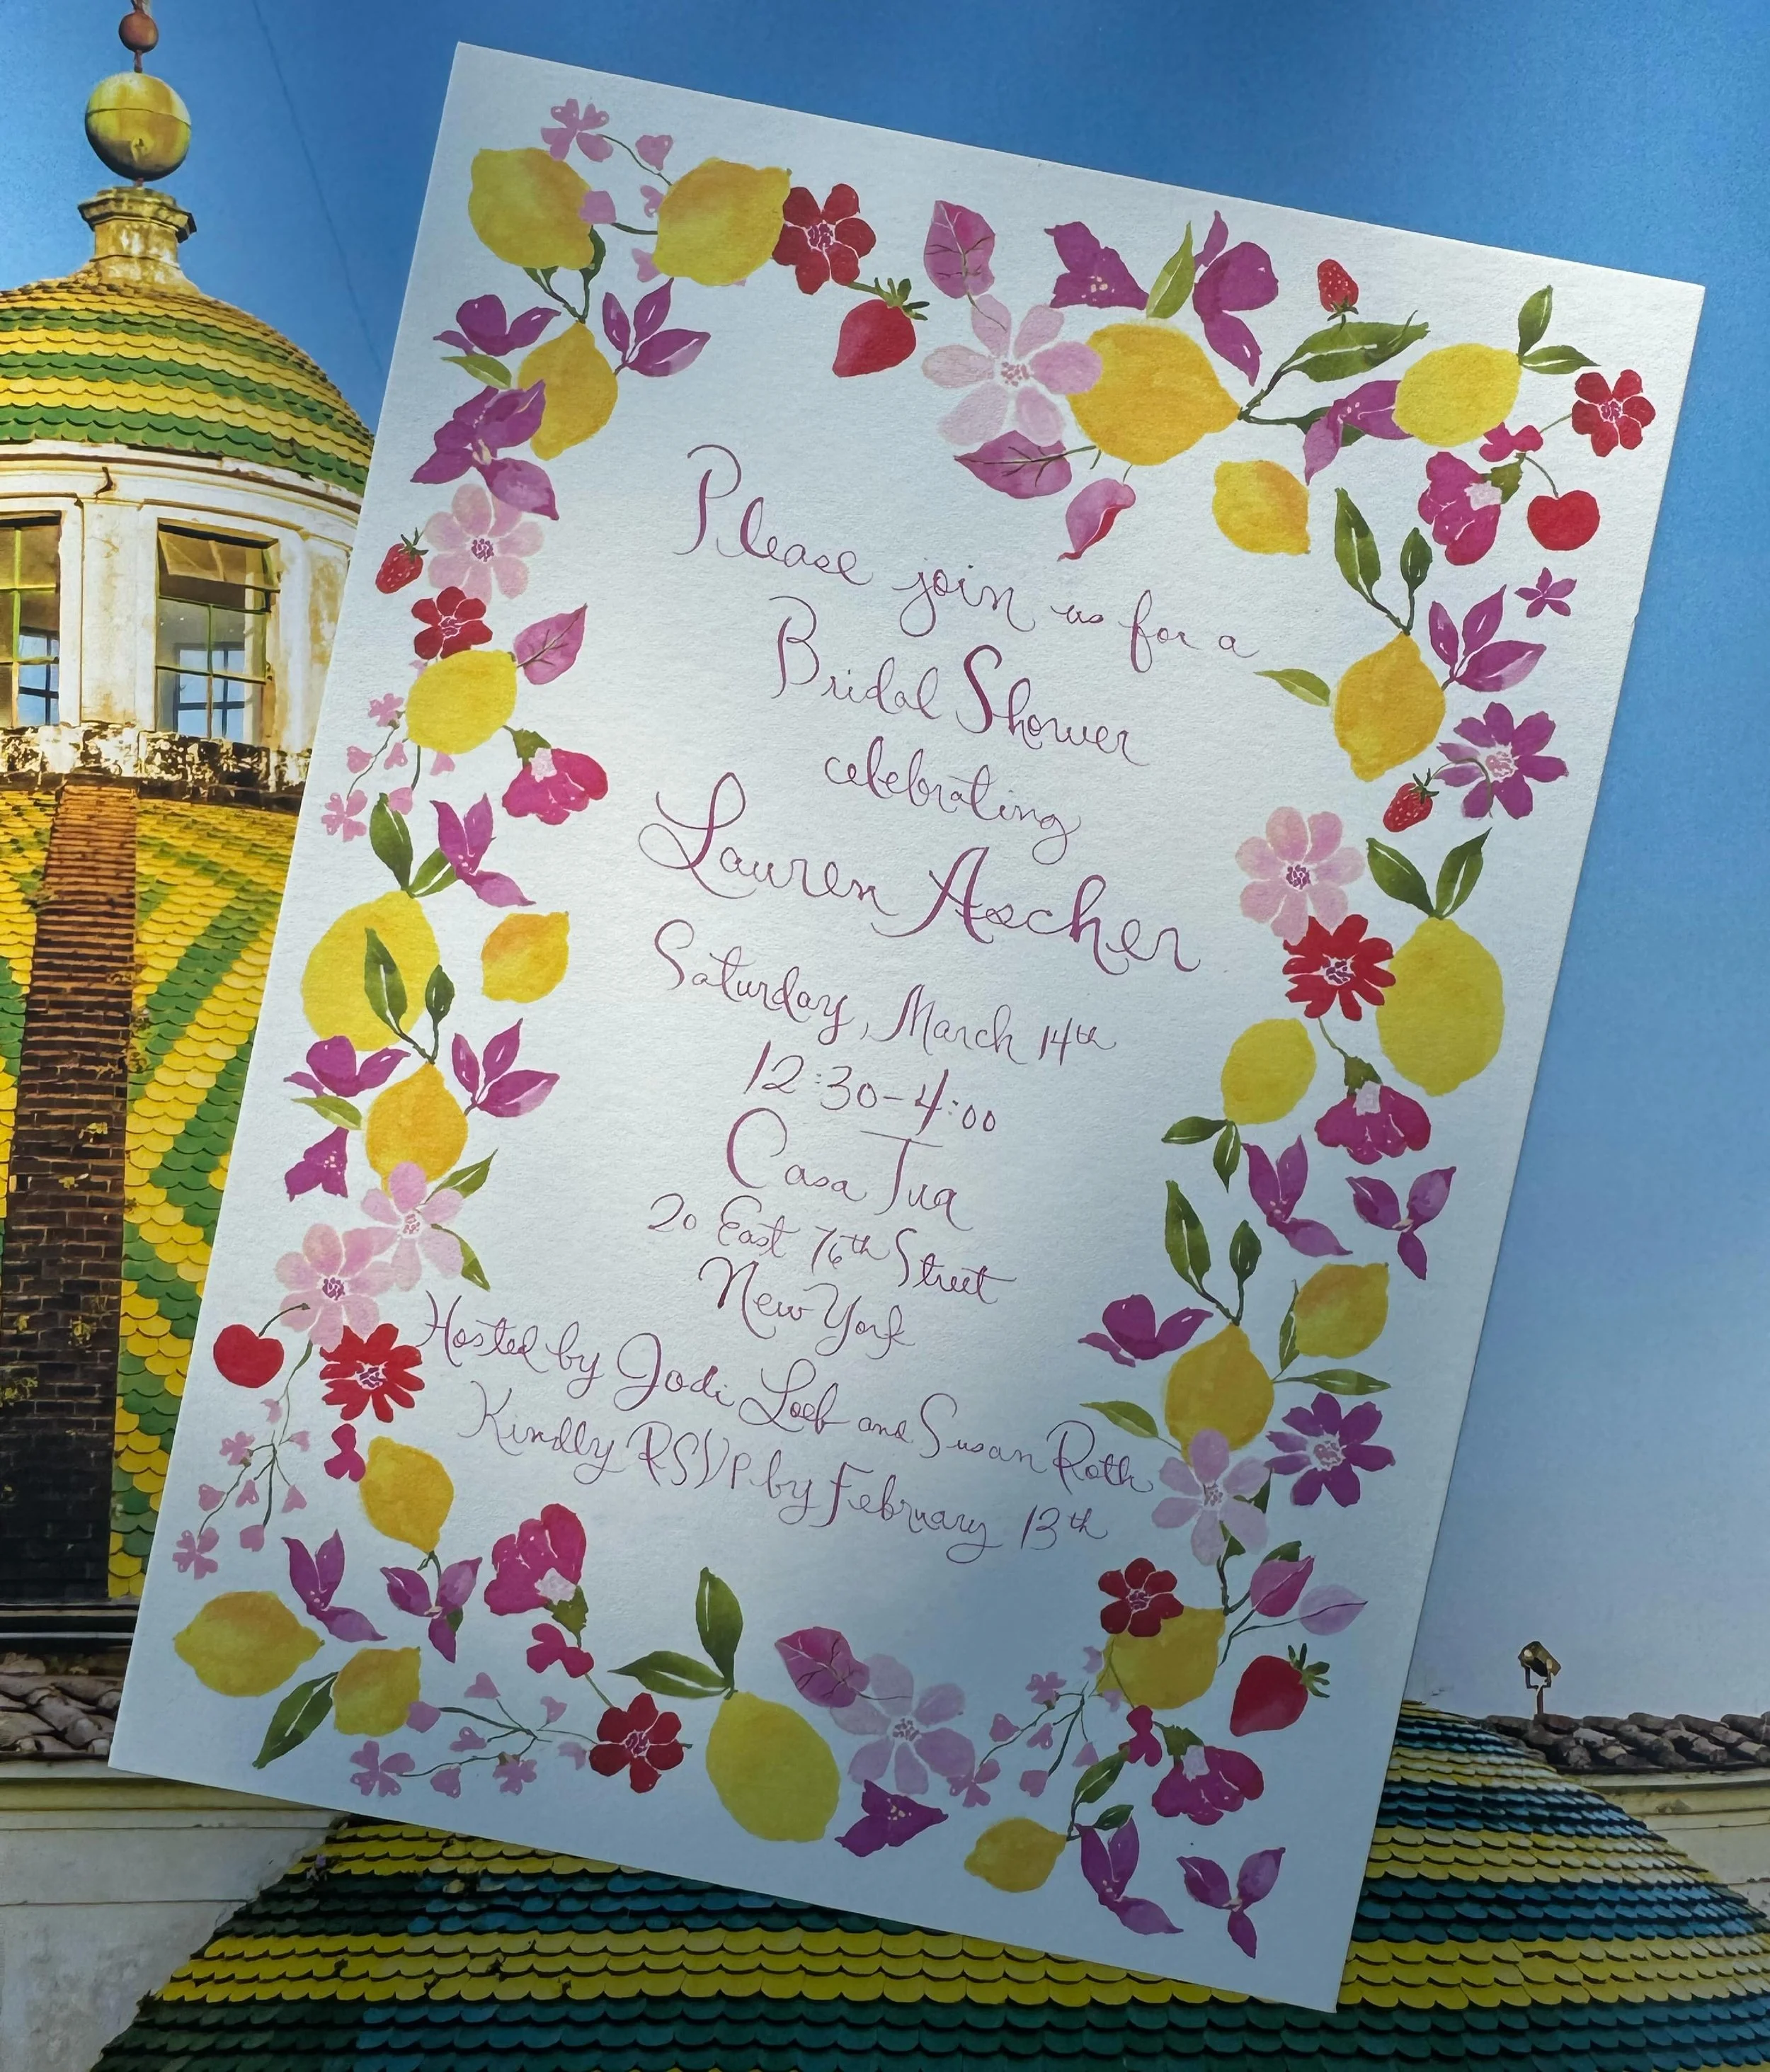 Please join us for a
Bridal Shower
celebrating
Lauren Ascher
Saturday, March 14th
12:30-4:00
Casa Tua
20 East 76th Street
New York
Hosted by Jodi Loeb and Susan Roth
Kindly RSVP by February 13th